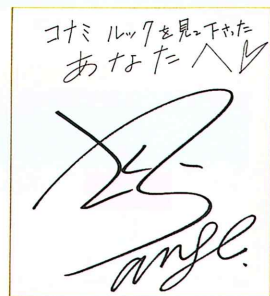 コナミルックを見て下さった
あなたへ♡
ange.